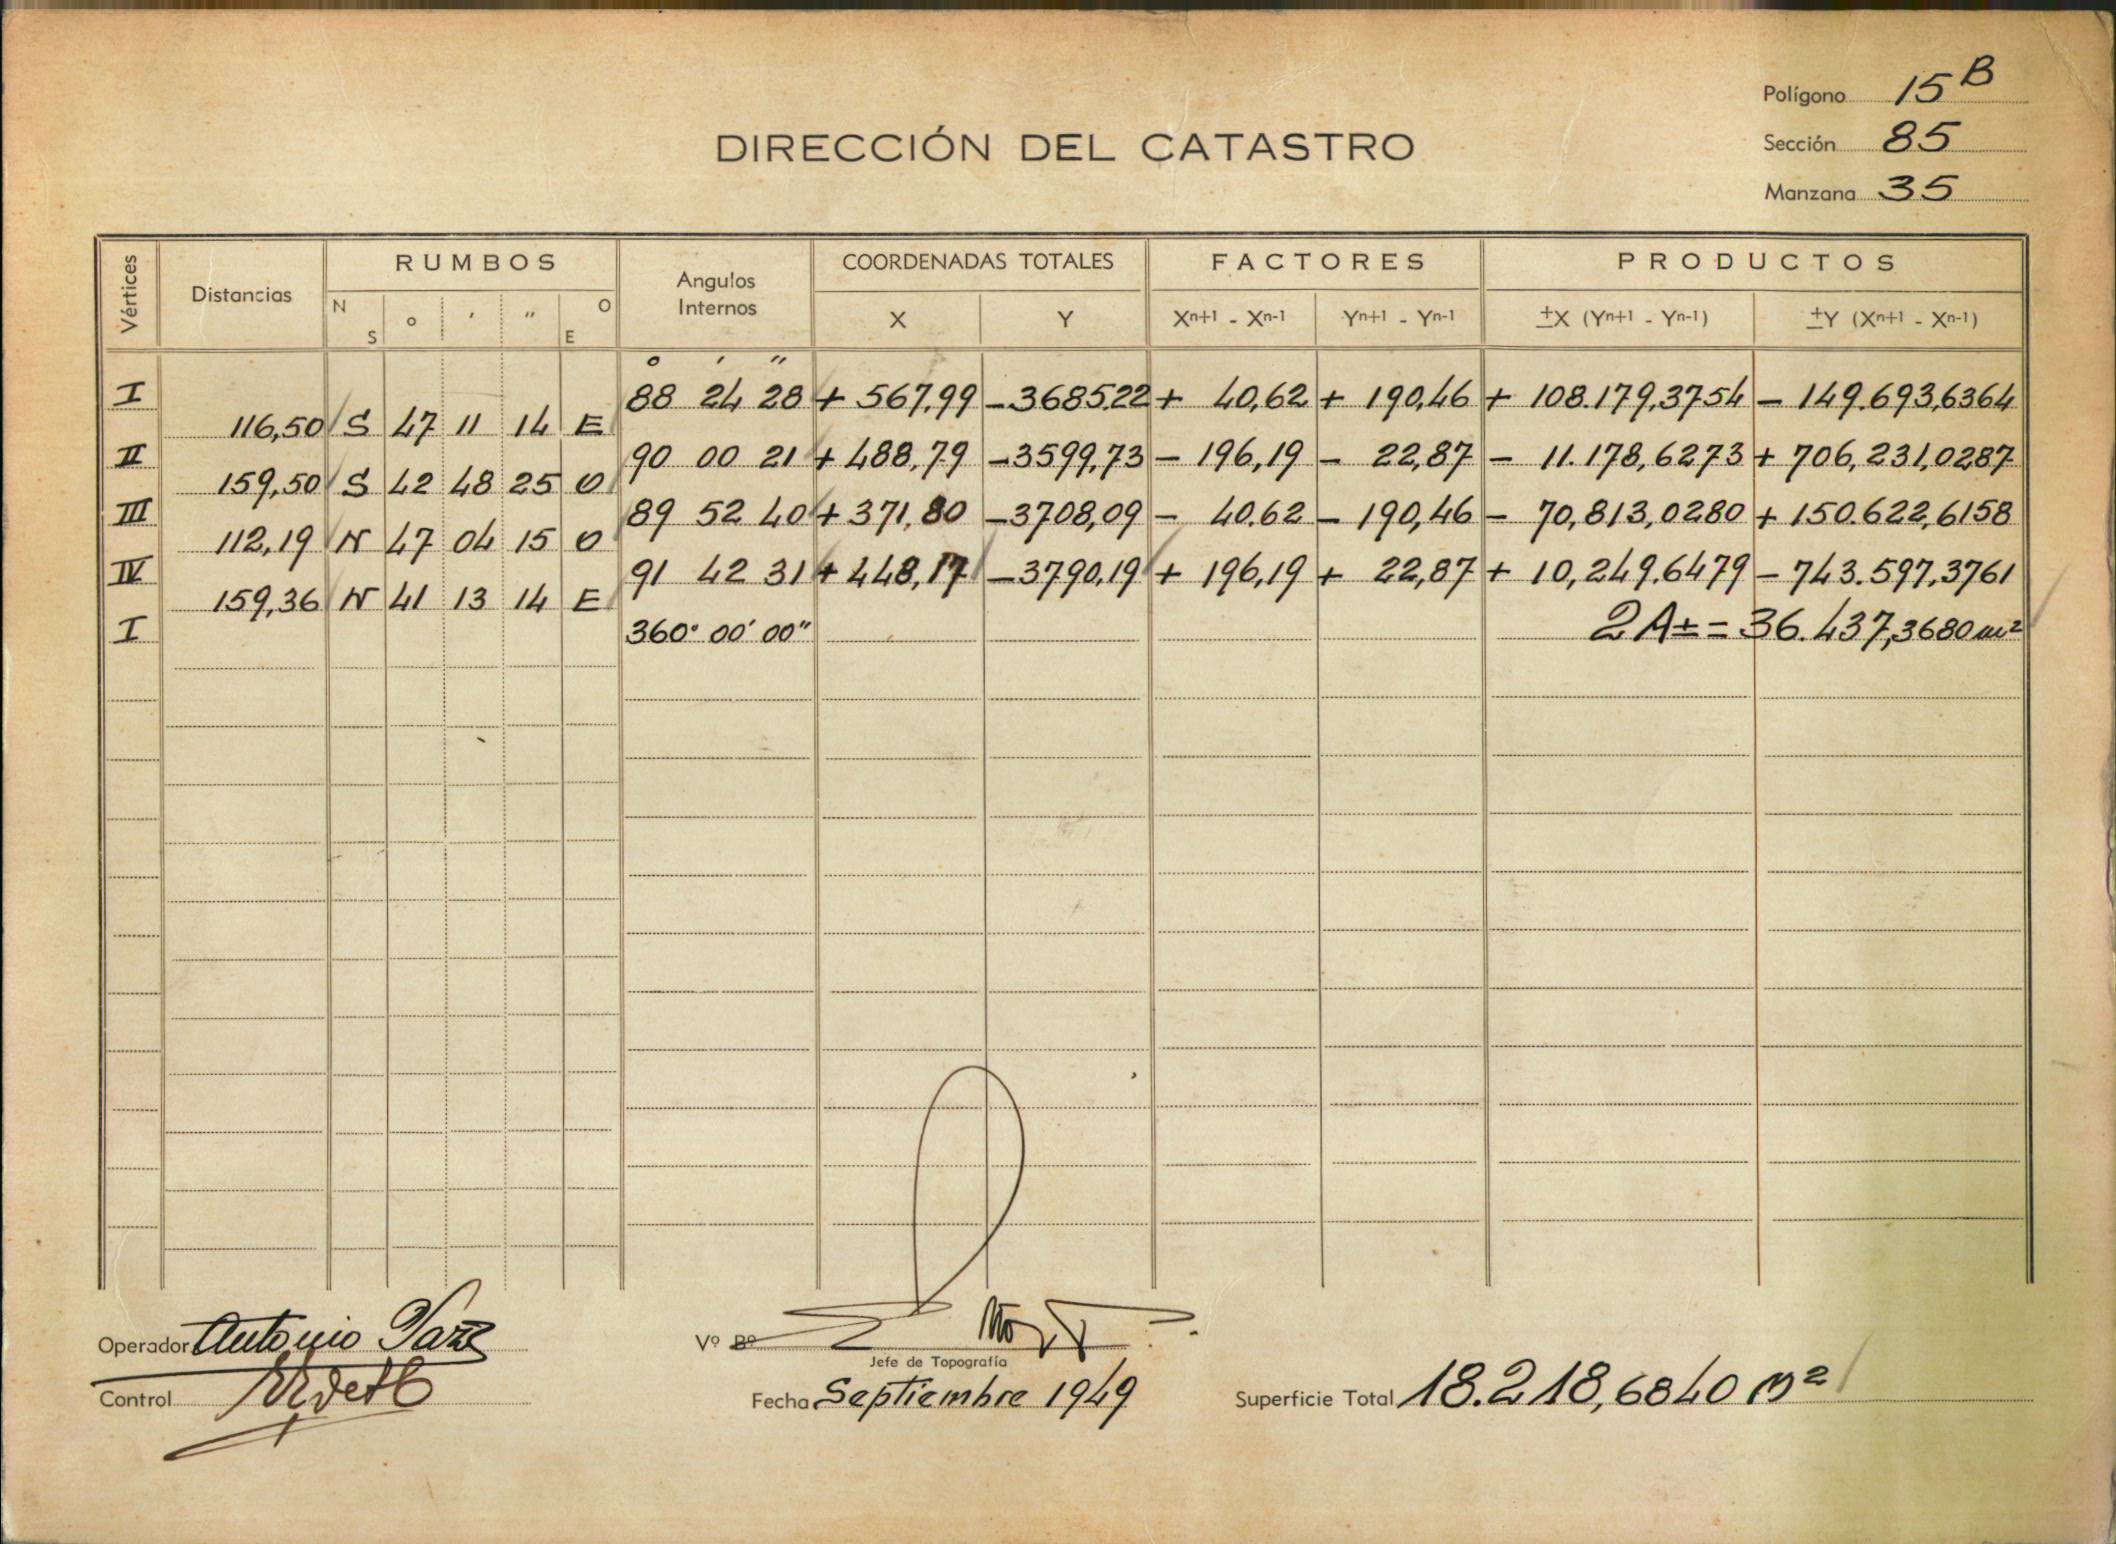 Polígono 15 B
Sección 85
Manzana 35
DIRECCIÓN DEL CATASTRO
Vértices Distancias RUMBOS Angulos Internos COORDENADAS TOTALES FACTORES PRODUCTOS
N S ° ' " O E X Y Xn+1 - Xn-1 Yn+1 - Yn-1 ±X (Yn+1 - Yn-1) ±Y (Xn+1 - Xn-1)
° ' "
I 88 24 28 + 567,99 - 3685,22 + 40,62 + 190,46 + 108.179,3754 - 149.693,6364
116,50 S 47 11 14 E
II 90 00 21 + 488,79 - 3599,73 - 196,19 - 22,87 - 11.178,6273 + 706,231,0287
159,50 S 42 48 25 O
III 89 52 40 + 371,80 - 3708,09 - 40.62 - 190,46 - 70,813,0280 + 150.622,6158
112,19 N 47 04 15 O
IV 91 42 31 + 448,17 - 3790,19 + 196,19 + 22,87 + 10,249.6479 - 743.597,3761
159,36 N 41 13 14 E
I 360° 00' 00" 2A± = 36.437,3680 m²
Operador Antonio
Vº Bº
Jefe de Topografía
Control
Fecha Septiembre 1949
Superficie Total 18.218,6840 m²